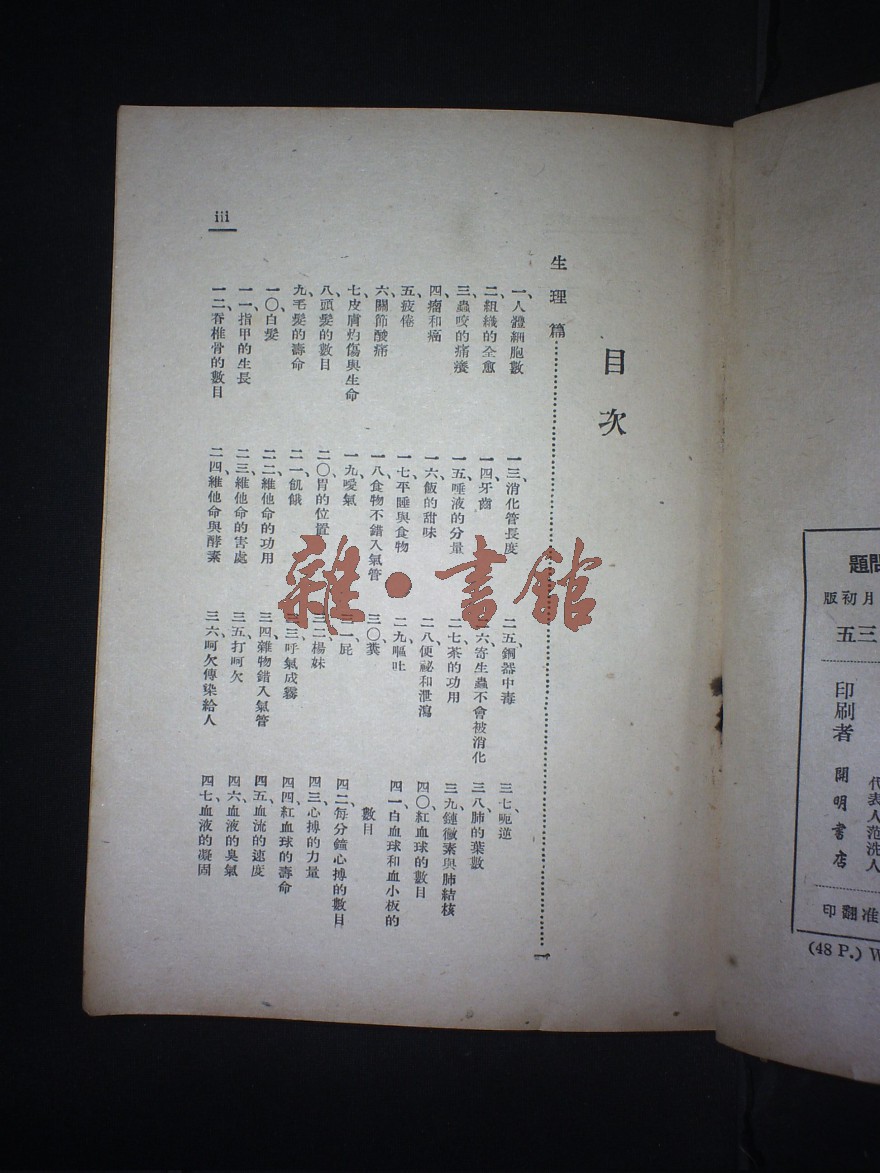 iii
目次
生理篇……一
一、人體細胞數
二、組織的全愈
三、蟲咬的痛癢
四、瘤和癌
五、疲倦
六、關節酸痛
七、皮膚灼傷與生命
八、頭髮的數目
九、毛髮的壽命
一〇、白髮
一一、指甲的生長
一二、脊椎骨的數目
一三、消化管長度
一四、牙齒
一五、唾液的分量
一六、飯的甜味
一七、平睡與食物
一八、食物不錯入氣管
一九、噯氣
二〇、胃的位置
二一、飢餓
二二、維他命的功用
二三、維他命的害處
二四、維他命與酵素
二五、銅器中毒
二六、寄生蟲不會被消化
二七、茶的功用
二八、便祕和泄瀉
二九、嘔吐
三〇、糞
三一、屁
三二、楊妹
三三、呼氣成霧
三四、雜物錯入氣管
三五、打呵欠
三六、呵欠傳染給人
三七、呃逆
三八、肺的葉數
三九、鏈黴素與肺結核
四〇、紅血球的數目
四一、白血球和血小板的
數目
四二、每分鐘心搏的數目
四三、心搏的力量
四四、紅血球的壽命
四五、血流的速度
四六、血液的臭氣
四七、血液的凝固
雜·書館
問題
月初版
三五
印刷者
開明書店
代表人范洗人
准翻印
(48 P.) W